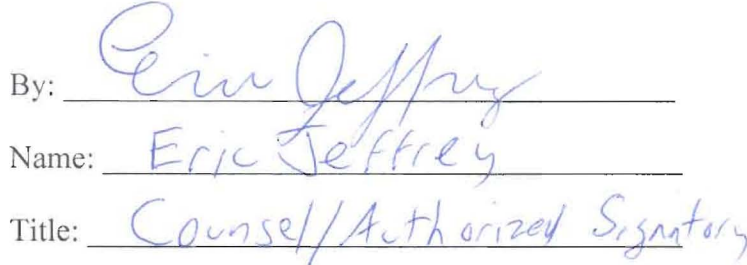 By: Eric Jeffrey
Name: Eric Jeffrey
Title: Counsel/Authorized Signatory